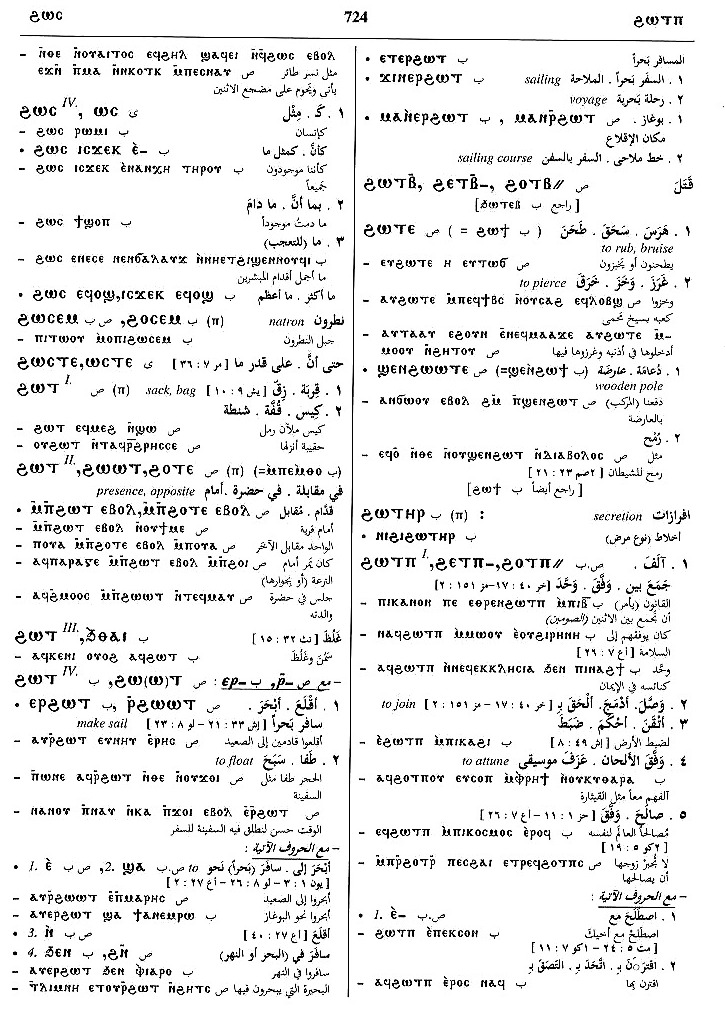 ϩⲱⲥ 724 ϩⲱⲧⲡ
– ⲛ̄ⲑⲉ ⲛ̄ⲟⲩⲁⲓⲧⲟⲥ ⲉϥϩⲏⲗ ϣⲁϥⲉⲓ ⲛ̄ϥϩⲱⲥ ⲉⲃⲟⲗ
ⲉϫⲛ̄ ⲡⲙⲁ ⲛ̄ⲛⲕⲟⲧⲕ ⲙ̄ⲡⲉⲥⲛⲁⲩ ص مثل نسر طائر
يأتي ويحوم على مضجع الاثنين
ϩⲱⲥ IV, ⲱⲥ ى ١ . كَـ . مِثْل
– ϩⲱⲥ ⲣⲱⲙⲓ ب كإنسان
• ϩⲱⲥ ⲓⲥϫⲉⲕ ⲉ̀– ب كأنَّ . كمثل ما
– ϩⲱⲥ ⲓⲥϫⲉⲕ ⲉ̀ⲛⲁⲛⲭⲏ ⲧⲏⲣⲟⲩ ب كأننا موجودون
جميعاً
٢ . بما أنَّ . ما دامَ
– ϩⲱⲥ ϯϣⲟⲡ ب ما دمتُ موجوداً
٣ . ما (للتعجب)
– ϩⲱⲥ ⲉⲛⲉⲥⲉ ⲛⲉⲛϭⲁⲗⲁⲩϫ ⲛ̀ⲛⲉⲧϩⲓϣⲉⲛⲛⲟⲩϥⲓ ب
ما أجمل أقدام المبشرين
• ϩⲱⲥ ⲉϥⲟϣ,ⲓⲥϫⲉⲕ ⲉϥⲟϣ ب ما أكثر . ما أعظم
ϩⲱⲥⲉⲙ ص ب, ϩⲟⲥⲉⲙ ب (ⲡ) natron نطرون
– ⲡⲓⲧⲱⲟⲩ ⲙ̀ⲡⲓϩⲱⲥⲉⲙ ب جبل النطرون
ϩⲱⲥⲧⲉ,ϩⲱⲥⲧⲉ ى حتى أنَّ . على قدر ما [مر ٧ : ٣٦]
ϩⲱⲧ I. ص (ⲡ) sack, bag ١ . قِربَة . زِقّ [يش ٩ : ١٠]
٢ . كِيس . قُفَّة . شنطة
– ϩⲱⲧ ⲉϥⲙⲉϩ ⲛ̄ϣⲱ ص كيس ملآن رمل
– ⲟⲩϩⲱⲧ ⲛ̄ⲧⲁϥⲣ̄ϩⲏⲥⲥⲉ ص حقيبة أنزلها
ϩⲱⲧ II.,ϩⲱⲱⲧ,ϩⲟⲧⲉ ص (ⲡ) (=ⲙ̀ⲡⲉⲙⲑⲟ ب)
presence, opposite في مقابلة . في حضرة .أمام
• ⲙ̄ⲡϩⲱⲧ ⲉⲃⲟⲗ,ⲙ̄ⲡϩⲟⲧⲉ ⲉⲃⲟⲗ ص قدّام . مُقابل
– ⲙ̄ⲡϩⲱⲧ ⲉⲃⲟⲗ ⲛ̄ⲟⲩϯⲙⲉ ص أمام قرية
– ⲡⲟⲩⲁ ⲙ̄ⲡϩⲟⲧⲉ ⲉⲃⲟⲗ ⲙ̄ⲡⲟⲩⲁ ص الواحد مقابل الآخر
– ⲁϥⲡⲁⲣⲁⲅⲉ ⲙ̄ⲡϩⲱⲧ ⲉⲃⲟⲗ ⲙ̄ⲡϩⲟⲓ ص كان يمر أمام
الترعة (أو بجوارها)
– ⲁϥϩⲙⲟⲟⲥ ⲙ̄ⲡϩⲱⲱⲧ ⲛ̄ⲧⲉϥⲙⲁⲩ ص جلس في حضرة
والدته
ϩⲱⲧ III.,ϧⲑⲁⲓ ب غَلُظَ [تث ٣٢ : ١٥]
– ⲁϥⲕⲉⲛⲓ ⲟⲩⲟϩ ⲁϥϩⲱⲧ ب سَمُنَ وغَلُظَ
ϩⲱⲧ IV. ب, ϩⲱ(ⲱ)ⲧ ص : ⲉⲣ– ب ,ⲣ̄– مع ص–
• ⲉⲣϩⲱⲧ ب, ⲣ̄ϩⲱⲱⲧ ص ١ . أَقْلَعَ . أَبْحَرَ .
make sail سافر بَحراً [إش ٣٣ : ٢١–لو ٨ : ٢٣]
– ⲁⲩⲣ̄ϩⲱⲧ ⲉⲩⲛⲏⲩ ⲉⲣⲏⲥ ص أقلعوا قادمين إلى الصعيد
to float ٢ . طَفا . سَبَحَ
– ⲡⲱⲛⲉ ⲁϥⲣ̄ϩⲱⲧ ⲛ̄ⲑⲉ ⲛ̄ⲟⲩϫⲟⲓ ص الحجر طفا مثل
السفينة
– ⲛⲁⲛⲟⲩ ⲡⲛⲁⲩ ⲛ̄ⲕⲁ ⲡϫⲟⲓ ⲉⲃⲟⲗ ⲉ̄ⲣϩⲱⲧ ص
الوقت حسن لنطلق فيه السفينة للسفر
– مع الحروف الآتية :
• 1. ⲉ̀ ص ب ,2. ϣⲁ ص.ب to أبْحَرَ إلى . سافَرَ (بَحراً) نحو
[يون ١ : ٣–لو ٨ : ٢٦–أع ٢٧ : ٢]
– ⲁⲩⲣ̄ϩⲱⲱⲧ ⲉⲡⲙⲁⲣⲏⲥ ص أبحروا إلى الصعيد
– ⲁⲩⲉⲣϩⲱⲧ ϣⲁ ϯⲁⲛⲉⲙⲣⲱ ب أبحروا نحو البوغاز
• 3. ⲛ̄ ص ب أقلَعَ [أع ٢٧ : ٤٠]
• 4. ϧⲉⲛ ب, ϩⲛ̄ ص سافَرَ في (البحر أو النهر)
– ⲁⲩⲉⲣϩⲱⲧ ϧⲉⲛ ⲫⲓⲁⲣⲟ ب سافروا في النهر
– ⲧⲗⲓⲙⲛⲏ ⲉⲧⲟⲩⲣ̄ϩⲱⲧ ⲛ̄ϩⲏⲧⲥ ص البحيرة التي يبحرون فيها
• ⲉⲧⲉⲣϩⲱⲧ ب المسافر بَحراً
• ϫⲓⲛⲉⲣϩⲱⲧ ب sailing ١ . السفَر بَحراً . الملاحة
voyage ٢ . رحلة بَحرية
• ⲙⲁⲛ̀ⲉⲣϩⲱⲧ ب , ⲙⲁⲛⲣ̄ϩⲱⲧ ص ١ . بوغاز .
مكان الإقلاع
sailing course ٢ . خط ملاحى . السفر بالسفن
ϩⲱⲧⲃ̄, ϩⲉⲧⲃ̄–, ϩⲟⲧⲃ// ص قَتَلَ
[راجع ب ϧⲱⲧⲉⲃ]
ϩⲱⲧⲉ ص ( = ϩⲱϯ ب ) ١ . هَرَسَ . سَحَقَ . طَحَنَ
to rub, bruise
– ⲉⲩϩⲱⲧⲉ ⲏ ⲉⲩⲧⲱϭ ص يطحنون أو يخبزون
to pierce ٢ . غَرَزَ . وَخَزَ . خَرَقَ
– ⲁⲩϩⲱⲧⲉ ⲙ̄ⲡⲉϥϯⲃⲥ ⲛ̄ⲟⲩⲥⲁϩ ⲉϥⲗⲟⲃϣ ص وخزوا
كعبه بسيخ محمى
– ⲁⲩⲧⲁⲁⲩ ⲉϩⲟⲩⲛ ⲉⲛⲉϥⲙⲁⲁϫⲉ ⲁⲩϩⲱⲧⲉ ⲙ̄-
ⲙⲟⲟⲩ ⲛ̄ϩⲏⲧⲟⲩ ص أدخلوها في أذنيه وغرزوها فيها
• ϣⲉⲛϩⲱⲱⲧⲉ ص (=ϣⲉⲛϩⲱϯ ب) ١ . دُعامَة . عارضة
wooden pole
– ⲁⲛϭⲱⲟⲩ ⲉⲃⲟⲗ ϩⲙ̄ ⲡϣⲉⲛϩⲱⲧ ص دفعنا (المركب)
بالعارضة
٢ . رُمْح
– ⲉϥⲟ̄ ⲛ̄ⲑⲉ ⲛ̄ⲟⲩϣⲉⲛϩⲱⲧ ⲛ̄ⲇⲓⲁⲃⲟⲗⲟⲥ ص مثل
رمح للشيطان [٢صم ٢٣ : ٢١]
[راجع أيضاً ب ϩⲱϯ]
ϩⲱⲧⲏⲣ ب (ⲡ) : secretion افرازات
• ⲛⲓϩⲓϩⲱⲧⲏⲣ ب أخلاط (نوع مرض)
ϩⲱⲧⲡ I.,ϩⲉⲧⲡ–,ϩⲟⲧⲡ// ص.ب ١ . ألَّفَ .
جَمَعَ بين . وَفَّقَ . وَحَّدَ [خر ٤٠ : ١٧–مز ١٥١ : ٢]
– ⲡⲓⲕⲁⲛⲱⲛ ⲡⲉ ⲉⲑⲣⲉⲛϩⲱⲧⲡ ⲙ̀ⲡⲓⲃ̄ ب القانون (يأمر)
أن نجمع بين الاثنين (الصومين)
– ⲛⲁϥϩⲱⲧⲡ ⲙ̀ⲙⲱⲟⲩ ⲉ̀ⲟⲩϩⲓⲣⲏⲛⲏ ب كان يوفقهم إلى
السلامة [أع ٧ : ٢٦]
– ⲁϥϩⲱⲧⲡ ⲛ̀ⲛⲉϥⲉⲕⲕⲗⲏⲥⲓⲁ ϧⲉⲛ ⲡⲓⲛⲁϩϯ ب وحَّد
كنائسه في الإيمان
to join ٢ . وَصَّلَ. أَدْمَجَ. أَلْحَقَ بِـ [خر ٤٠ : ١٧–مز ١٥١ : ٢]
٣ . أتْقَنَ . أحْكَمَ . ضَبَطَ
– ⲉ̀ϩⲱⲧⲡ ⲙ̀ⲡⲓⲕⲁϩⲓ ب لضبط الأرض [إش ٤٩ : ٨]
to attune ٤ . وَفَّقَ الألحان . عَزَفَ موسيقى
– ⲁϥϩⲟⲧⲡⲟⲩ ⲉⲩⲥⲟⲡ ⲙ̀ⲫⲣⲏϯ ⲛ̀ⲟⲩⲕⲩⲑⲁⲣⲁ ب
ألفهم معاً مثل القيثارة
٥ . صالَحَ . وَفَّقَ [حز ١ : ١١–أع ٧ : ٢٦]
– ⲉϥϩⲱⲧⲡ ⲙ̀ⲡⲓⲕⲟⲥⲙⲟⲥ ⲉ̀ⲣⲟϥ ب مُصالحاً العالم لنفسه
[٢كو ٥ : ١٩]
– ⲙ̄ⲡⲣ̄ϩⲟⲧⲣ̄ ⲡⲉⲥϩⲁⲓ ⲉⲧⲣⲉϥϩⲟⲧⲡⲥ ص لا تُجبِرْ زوجها
أن يصالحها
– مع الحروف الآتية :
• 1. ⲉ̀– ص.ب ١ . اصطَلَحَ مع
– ϩⲱⲧⲡ ⲉ̀ⲡⲉⲕⲥⲟⲛ ب اصطَلِح مع أخيك
[مت ٥ : ٢٤–١كو ٧ : ١١]
٢ . اقترَنَ بِـ . اتَّحَدَ بِـ . التَصَقَ بِـ
– ⲁϥϩⲱⲧⲡ ⲉ̀ⲣⲟⲥ ⲛⲁϥ ب اقترن بها